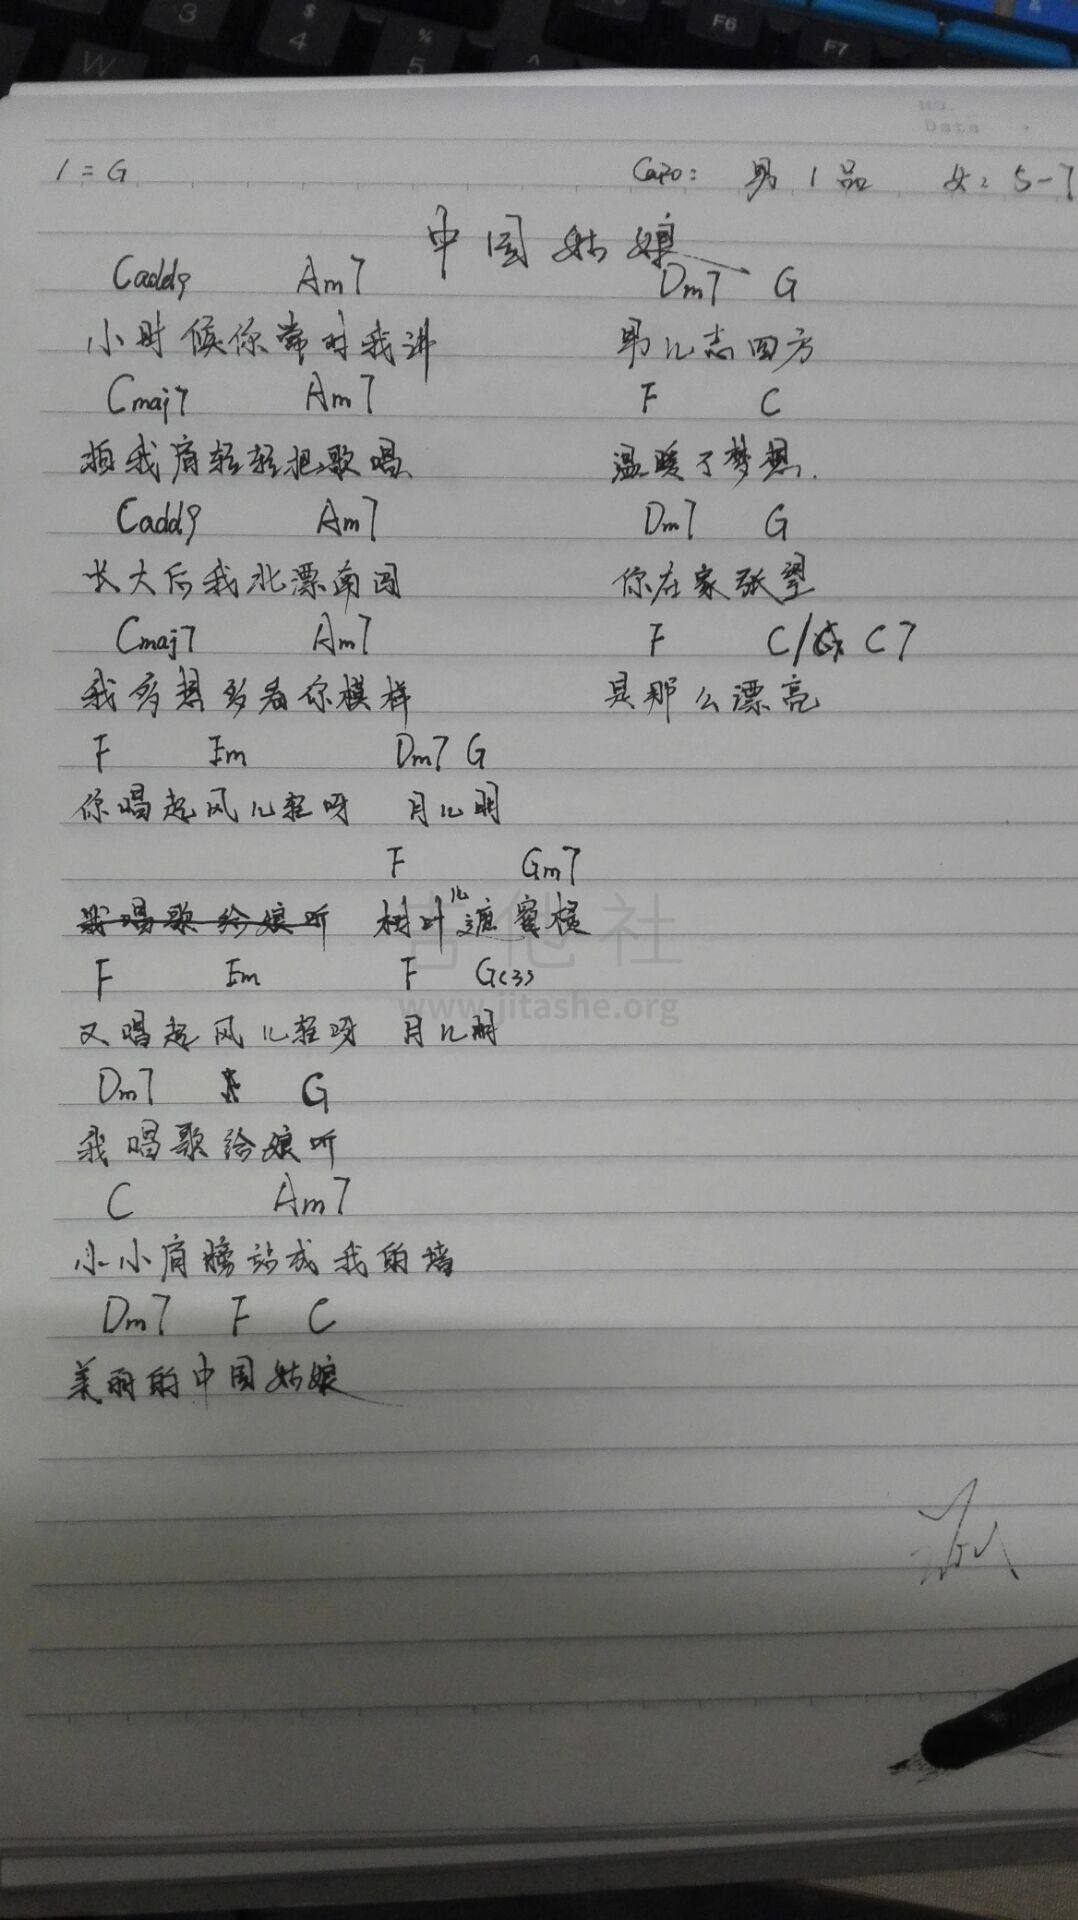 1 = G Capo: 男 1 品 女: 5-7
中国姑娘
Cadd9 Am7 Dm7 G
小时候你常对我讲 男儿志四方
Cmaj7 Am7 F C
拍我肩轻轻把歌唱 温暖了梦想.
Cadd9 Am7 Dm7 G
长大后我北漂南闯 你在家张望
Cmaj7 Am7 F C/G C7
我多想多看你模样 是那么漂亮
F Em Dm7 G
你唱起风儿轻呀 月儿明
F Gm7
我唱歌给娘听 树叶儿遮窗棂
吉他社
F Em F G(3)
www.jitashe.org
又唱起风儿轻呀 月儿明
Dm7 G
我唱歌给娘听
C Am7
小小肩膀站成我的墙
Dm7 F C
美丽的中国姑娘
No.
Date
3 $ 4 % 5 ^ F6 F7
W